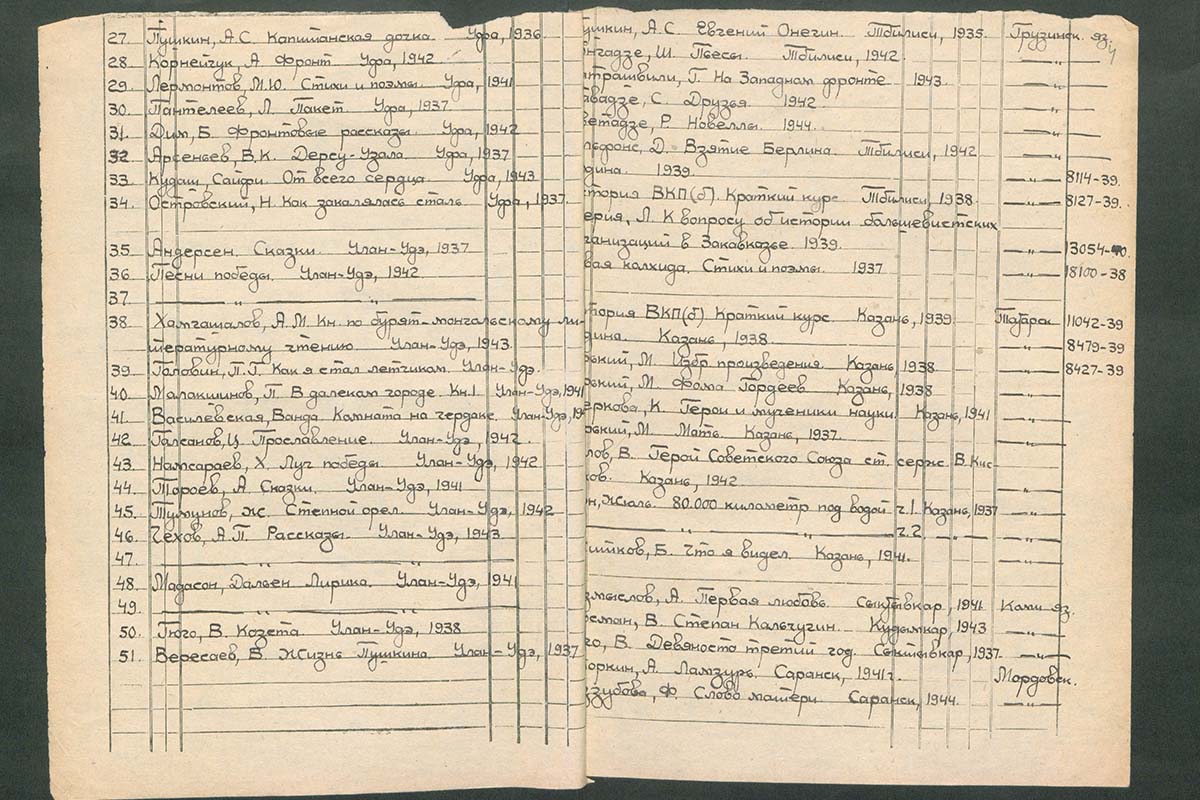 27. Пушкин, А.С. Капитанская дочка. Уфа, 1936
28. Корнейчук, А. Фронт Уфа, 1942
29. Лермонтов, М.Ю. Стихи и поэмы. Уфа, 1941
30. Пантелеев, Л. Пакет. Уфа, 1937.
31. Дим, Б. Фронтовые рассказы. Уфа, 1942
32 Арсеньев, В.К. Дерсу-Узала. Уфа, 1937
33. Кудаш, Сайфи. От всего сердца. Уфа, 1943
34. Островский, Н. Как закалялась сталь Уфа, 1937.
35. Андерсен. Сказки. Улан-Удэ, 1937
36. Песни победы. Улан-Удэ, 1942.
37. — „ — „ —
38. Хамгашалов, А.М. Кн. по бурят-монгольскому ли-
тературному чтению Улан-Удэ, 1943.
39. Головин, П.Г. Как я стал летчиком. Улан-Удэ.
40. Малакшинов, П. В далеком городе. Кн.I. Улан-Удэ, 1941
41. Василевская, Ванда. Комната на чердаке. Улан-Удэ,
42. Галсанов, Ц. Прославление. Улан-Удэ, 1942.
43. Намсараев, Х. Луч победы. Улан-Удэ, 1942
44. Тороев, А. Сказки. Улан-Удэ, 1941
45. Тумунов, Ж. Степной орел. Улан-Удэ, 1942
46. Чехов, А.П. Рассказы. Улан-Удэ, 1943.
47. — „ — „ —
48. Мадасон, Дольен Лирика. Улан-Удэ, 1941
49. — „ — „ —
50. Гюго, В. Козета. Улан-Удэ, 1938
51. Вересаев, В. Жизнь Пушкина. Улан-Удэ, 1937
ушкин, А.С. Евгений Онегин. Тбилиси, 1935. Грузинск. яз.
нгадзе, Ш. Пьесы. Тбилиси, 1942. — „ —
трашвили, Г. На Западном фронте 1943. — „ —
вадзе, С. Друзья. 1942 — „ —
ветадзе, Р. Новеллы. 1944. — „ —
льфонс, Д. Взятие Берлина. Тбилиси, 1942 — „ —
дина. 1939. — „ — 8114-39.
тория ВКП(б). Краткий курс Тбилиси, 1938 — „ — 8127-39.
ерия, Л. К вопросу об истории большевистских
ганизаций в Закавказье 1939. — „ — 13054-40.
вая колхида. Стихи и поэмы. 1937 — „ — 18100-38
тория ВКП(б) Краткий курс Казань, 1939 Татарск 11042-39
дина. Казань, 1938. — „ — 8479-39
рький, М. Избр произведения. Казань, 1938. — „ — 8427-39
рький, М. Фома Гордеев Казань, 1938 — „ —
еркова, К. Герои и мученики науки. Казань, 1941 — „ —
рький, М. Мать. Казань, 1937. — „ —
лов, В. Герой Советского Союза ст. серж. В. Кис-
ков. Казань, 1942. — „ —
рн, Жюль. 80.000 километр под водой ч.1. Казань, 1937 — „ —
— „ — ч.2. — „ —
итков, Б. Что я видел. Казань, 1941. — „ —
змыслов, А. Первая любовь. Сыктывкар, 1941 Коми яз.
сман, В. Степан Кольчугин. Кудымкар, 1943 — „ —
го, В. Девяносто третий год. Сыктывкар, 1937. — „ —
оркин, А. Ламзурь. Саранск, 1941 г. Мордовск.
ззубова, Ф. Слово матери Саранск, 1944. — „ —